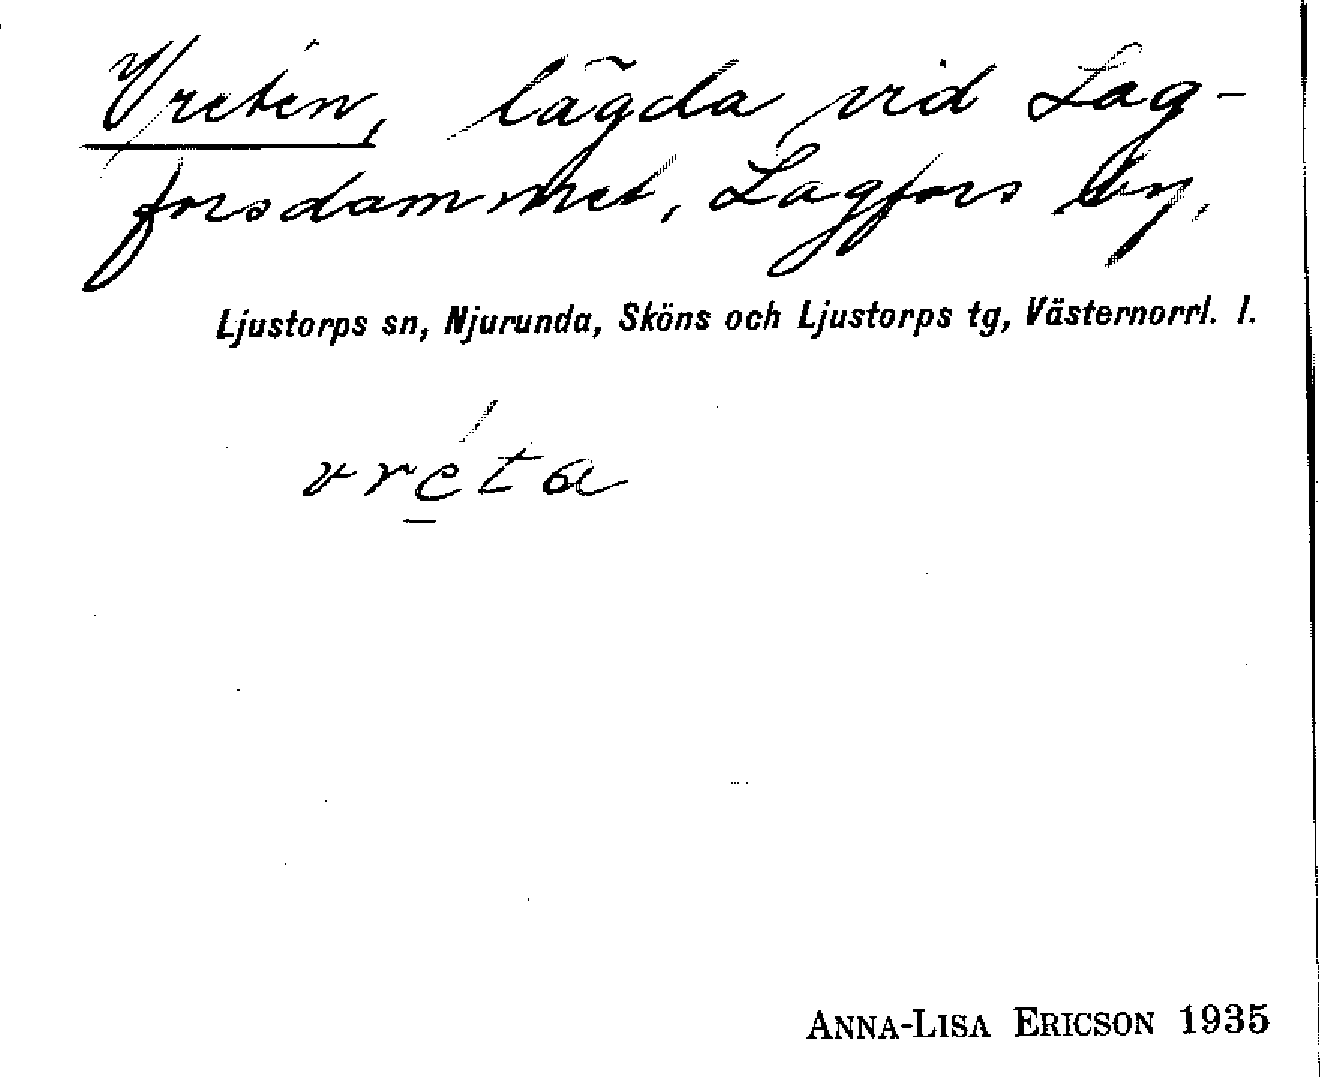 Vreten, lägda vid Lag-
forsdammet, Lagfors by.
Ljustorps sn, Njurunda, Sköns och Ljustorps tg, Västernorrl. l.
vré̱ta
ANNA-LISA ERICSON 1935